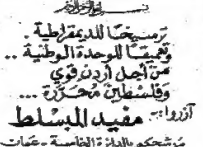 ترسيخاً للديمقراطية .
وتعميقاً للوحدة الوطنية ..
من أجل أردن قوي
وفلسطين محررة ...
آزروا :- مفيد المبسلط
مرشحكم بالدائرة الخامسة - عمان